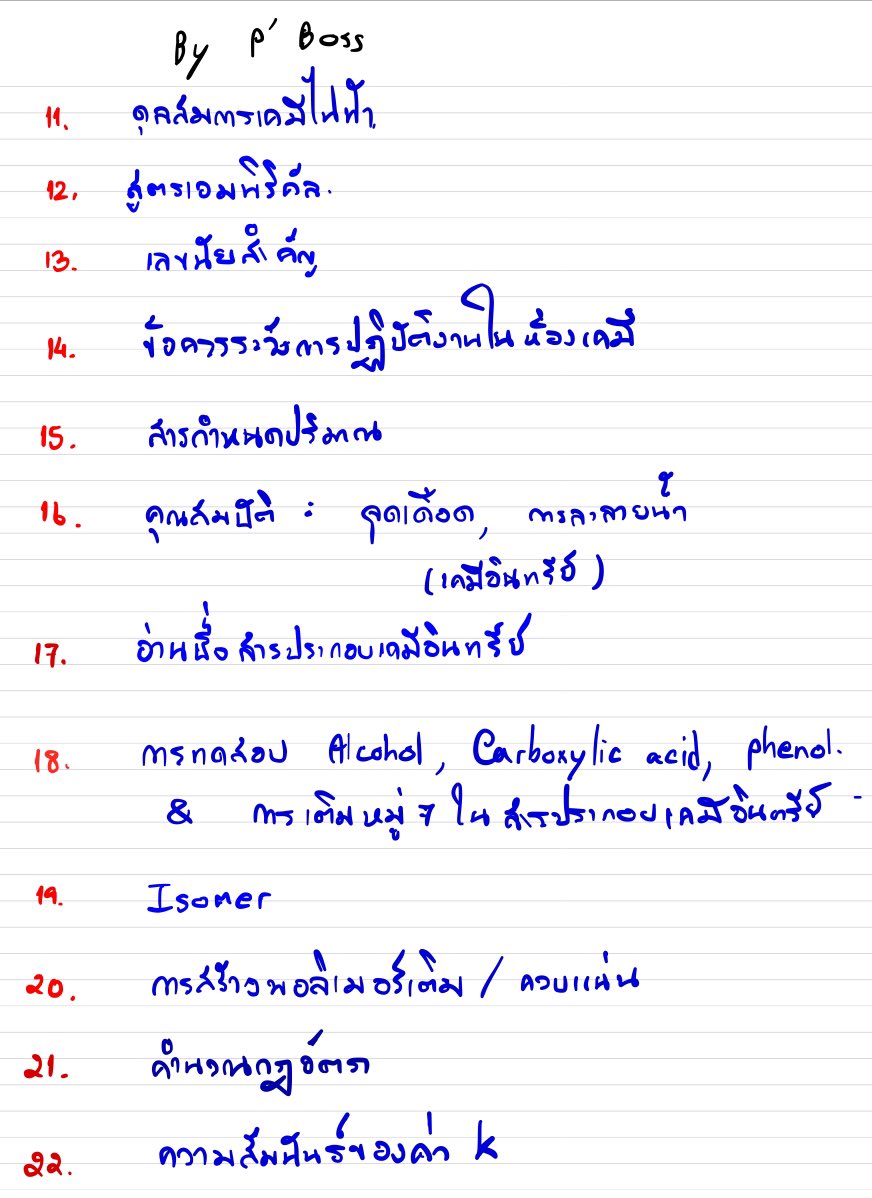 By P' Boss
11. ดุลสมการเคมีไฟฟ้า
12. สูตรเอมพิริคัล.
13. เลขนัยสำคัญ
14. ข้อควรระวังการปฏิบัติงานในห้องเคมี
15. สารกำหนดปริมาณ
16. คุณสมบัติ : จุดเดือด, การละลายน้ำ
(เคมีอินทรีย์)
17. อ่านชื่อสารประกอบเคมีอินทรีย์
18. การทดสอบ Alcohol, Carboxylic acid, phenol.
& การเติมหมู่ 7 ในสารประกอบเคมีอินทรีย์ -
19. Isomer
20. การสร้างพอลิเมอร์เติม / ควบแน่น
21. คำนวณกฎอัตรา
22. ความสัมพันธ์ของค่า k